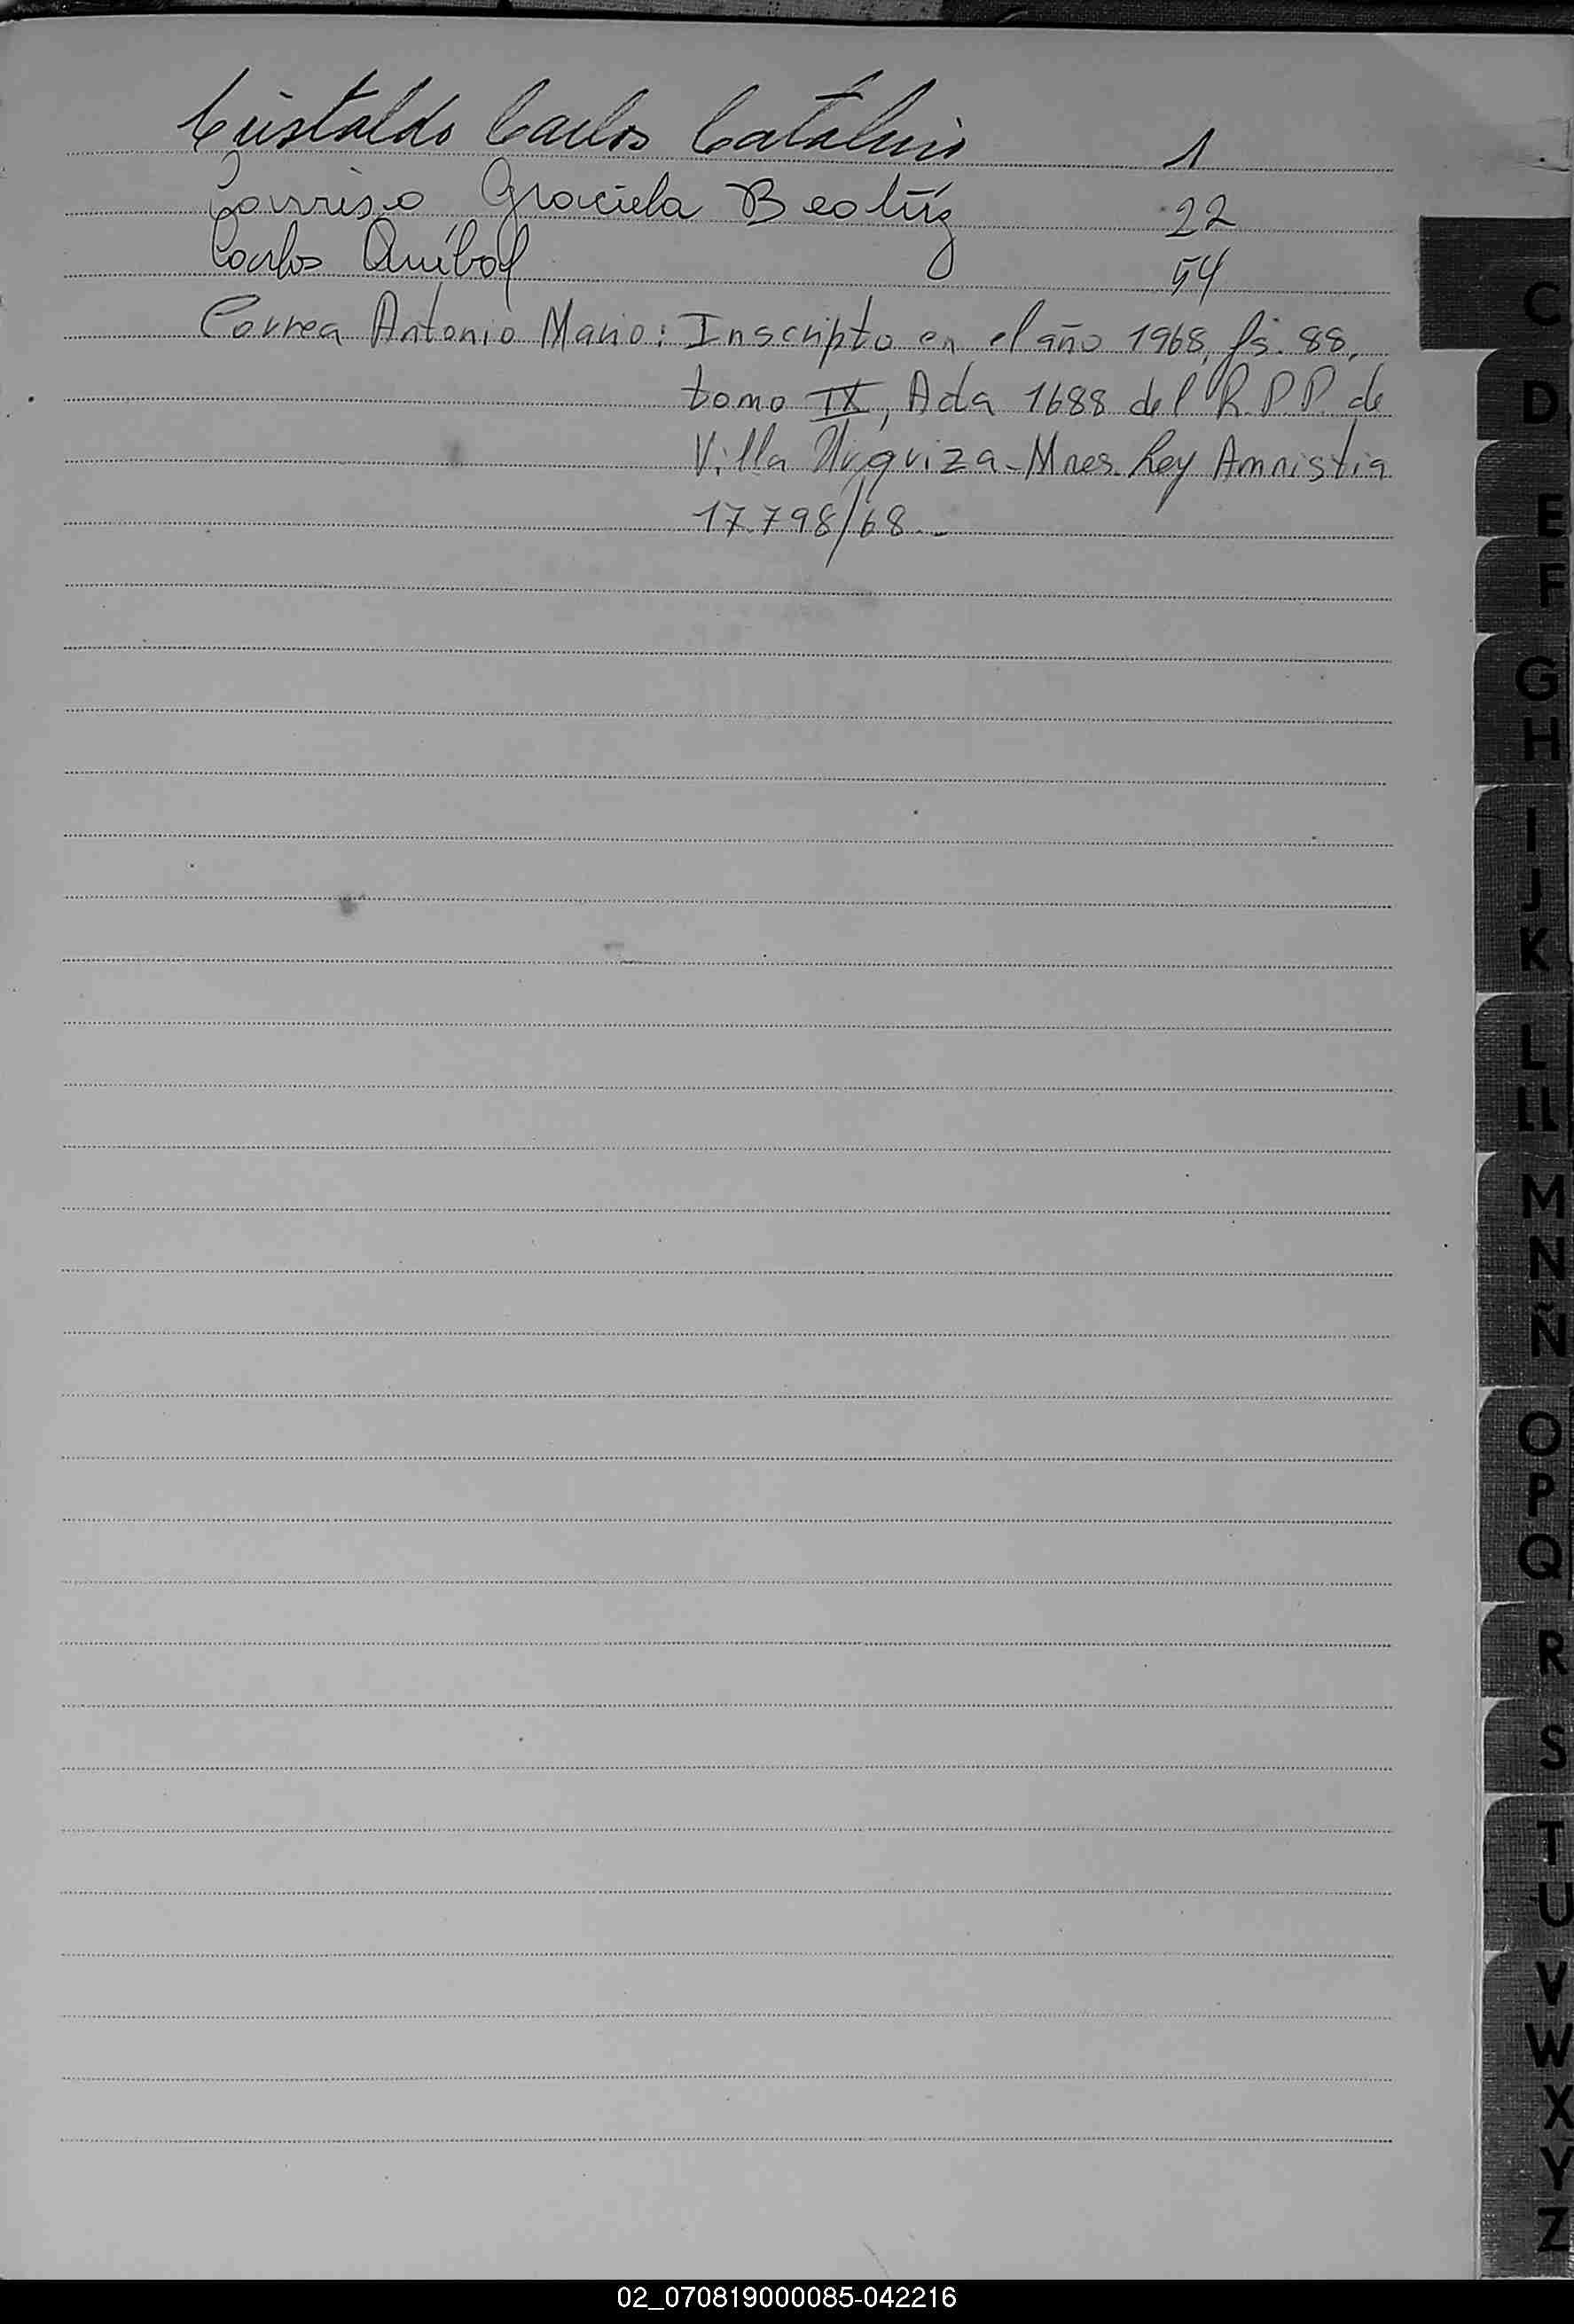 Cristaldo Carlos Catalino 1
Carriso Graciela Beatríz 22
Carlos Aníbal 54
Correa Antonio Mario: Inscripto en el año 1968, fs. 88,
tomo IX, Acta 1688 del R.P.P. de
Villa Urquiza - Mnes. Ley Amnistia
17.798/68.-
C
D
E
F
G
H
I
J
K
L
LL
M
N
Ñ
O
P
Q
R
S
T
U
V
W
X
Y
Z
02_070819000085-042216